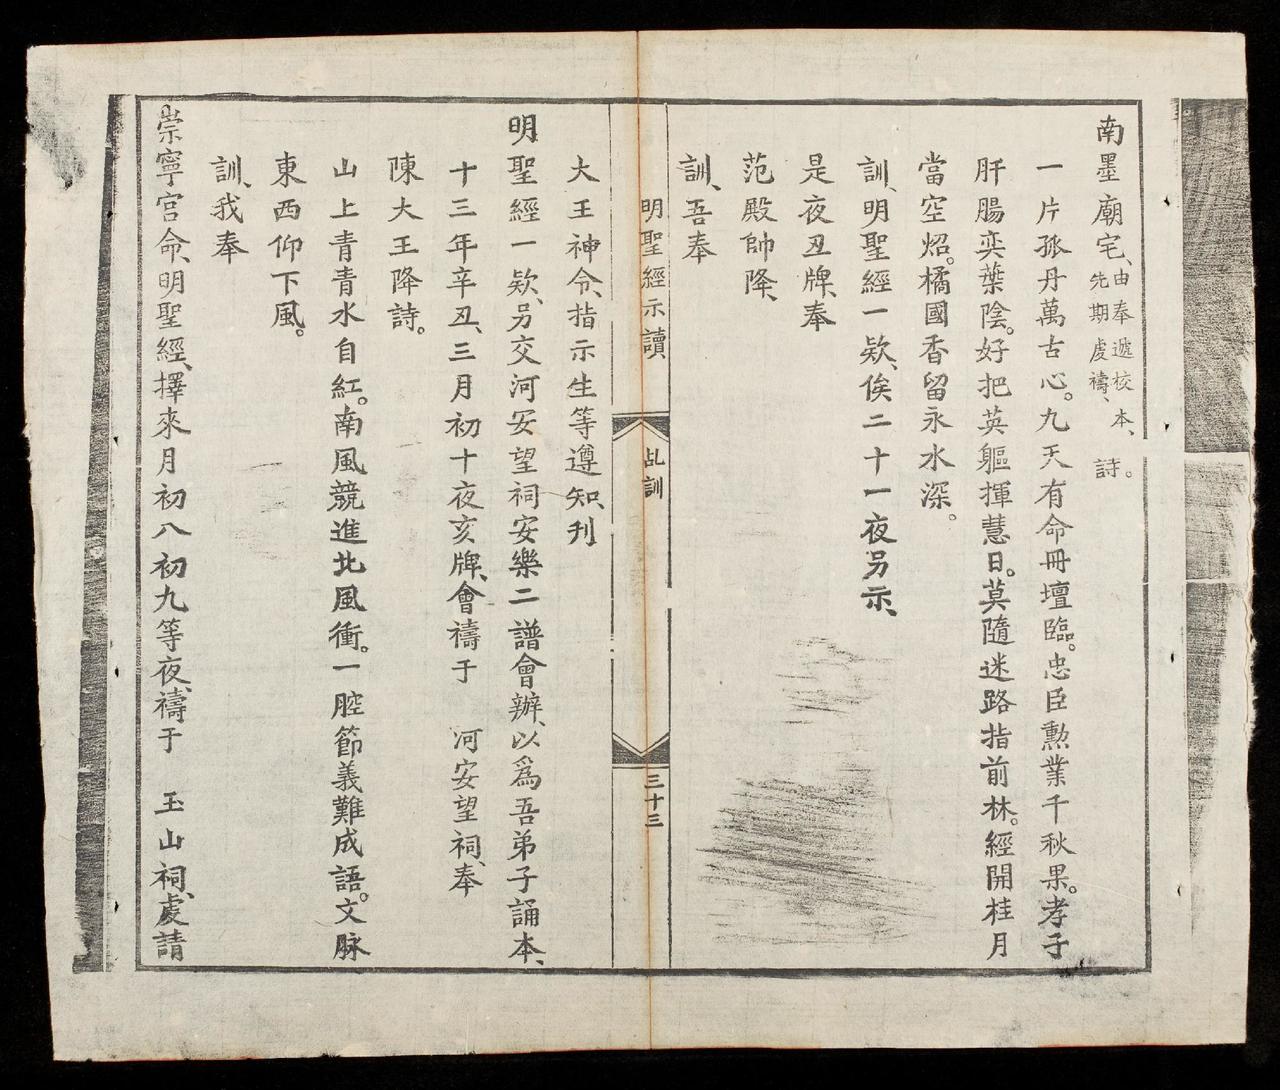 南墨廟宅、由奉遞校本、先期虔禱、詩。
一片孤丹萬古心。九天有命冊壇臨。忠臣勲業千秋果。孝子
肝腸奕葉陰。好把英軀揮慧日。莫隨迷路指前林。經開桂月
當空炤。橘國香留永水深。
訓、明聖經一欵、俟二十一夜另示、
是夜丑牌、奉
范殿帥降、
訓、吾奉
明聖經示讀 乩訓 三十三
大王神令、指示生等遵知、刊
明聖經一欵、另交河安望祠安樂二譜會辦、以爲吾弟子誦本、
十三年辛丑、三月初十夜亥牌、會禱于 河安望祠、奉
陳大王降詩。
山上青青水自紅。南風競進北風衝。一腔節義難成語。文脉
東西仰下風。
訓、我奉
崇寧宮命、明聖經、擇來月初八初九等夜、禱于 玉山祠、虔請